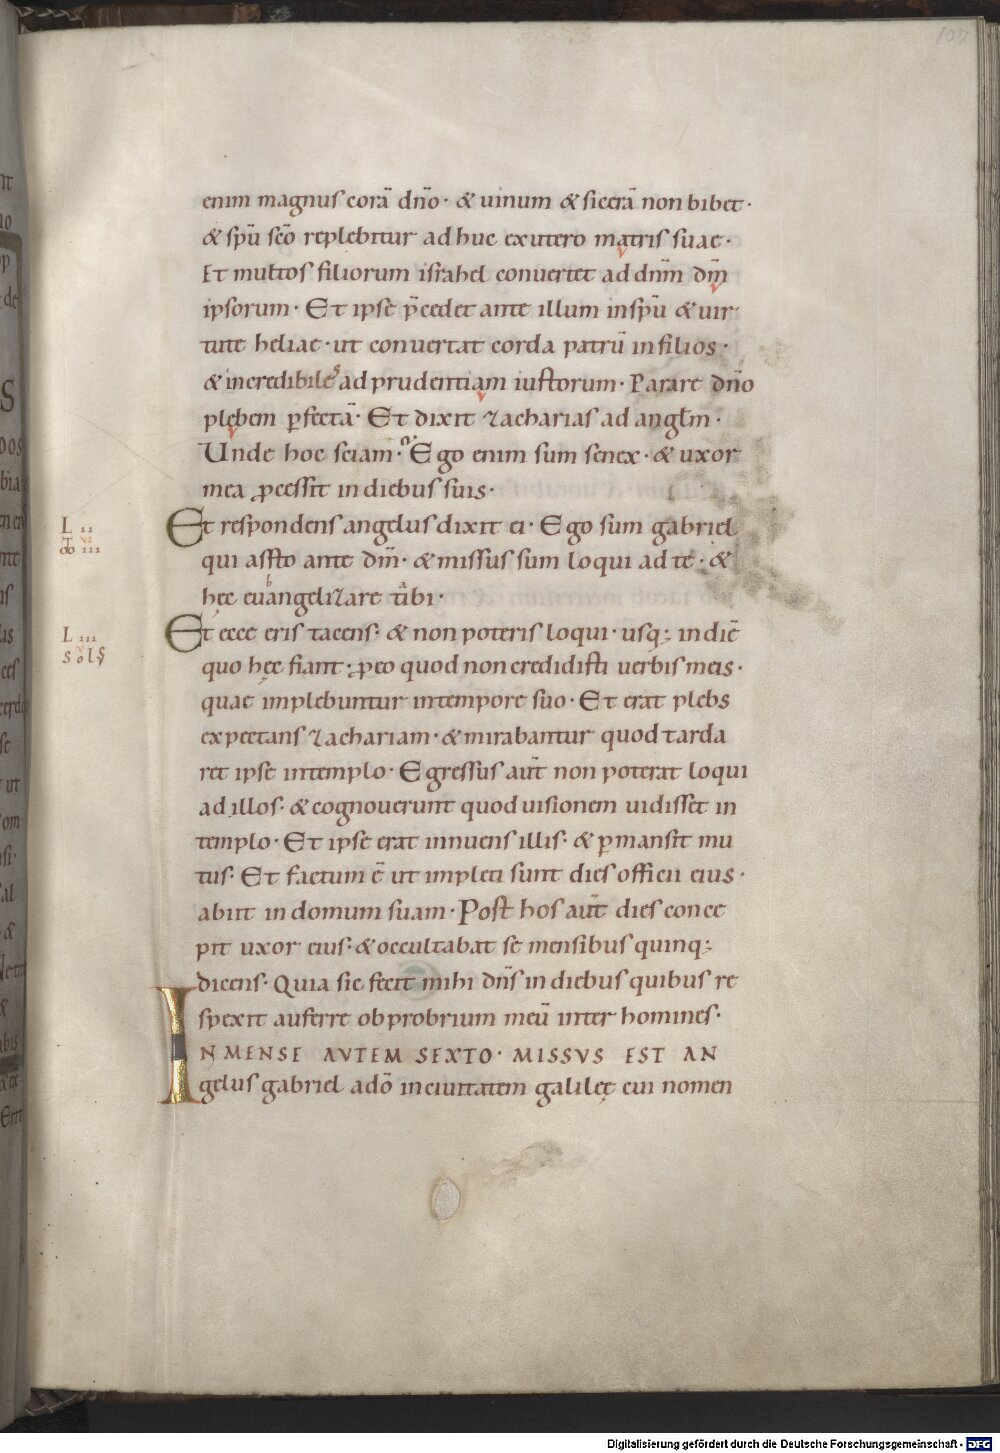 107
enim magnus corā dn̄o · & uinum & sicerā non bibet ·
& sp̄u sc̄o replebitur adhuc ex utero matris suae ·
Et multos filiorum israhel conuertet ad dn̄m dm̄
ipsorum · Et ipse p̄cedet ante illum in sp̄u & uir
tute heliae · ut conuertat corda patrū in filios ·
& incredibiles ad prudentiam iustorum · Parare dn̄o
plebem ꝑfectā · Et dixit zacharias ad angl̄m ·
Unde hoc sciam · Ego enim sum senex · & uxor
mea ꝓcessit in diebus suis ·
L II
Et respondens angelus dixit ei · Ego sum gabriel
qui assto ante dm̄ · & missus sum loqui ad te · &
hęc euangelizare tibi ·
L III
Et ecce eris tacens · & non poteris loqui · usq; in diē
quo hęc fiant · ꝓ eo quod non credidisti uerbis meis ·
quae implebuntur in tempore suo · Et erat plebs
expectans zachariam · & mirabantur quod tarda
ret ipse in templo · Egressus aut̄ non poterat loqui
ad illos · & cognouerunt quod uisionem uidisset in
templo · Et ipse erat innuens illis · & ꝑmansit mu
tus · Et factum ē ut impleti sunt dies officii eius ·
abiit in domum suam · Post hos aut̄ dies conce
pit uxor eius · & occultabat se mensibus quinq;
dicens · Quia sic fecit mihi dn̄s in diebus quibus re
spexit auferre obprobrium meū inter homines ·
IN MENSE AVTEM SEXTO · MISSVS EST AN
gelus gabriel a dō in ciuitatem galileę cui nomen
Digitalisierung gefördert durch die Deutsche Forschungsgemeinschaft - DFG